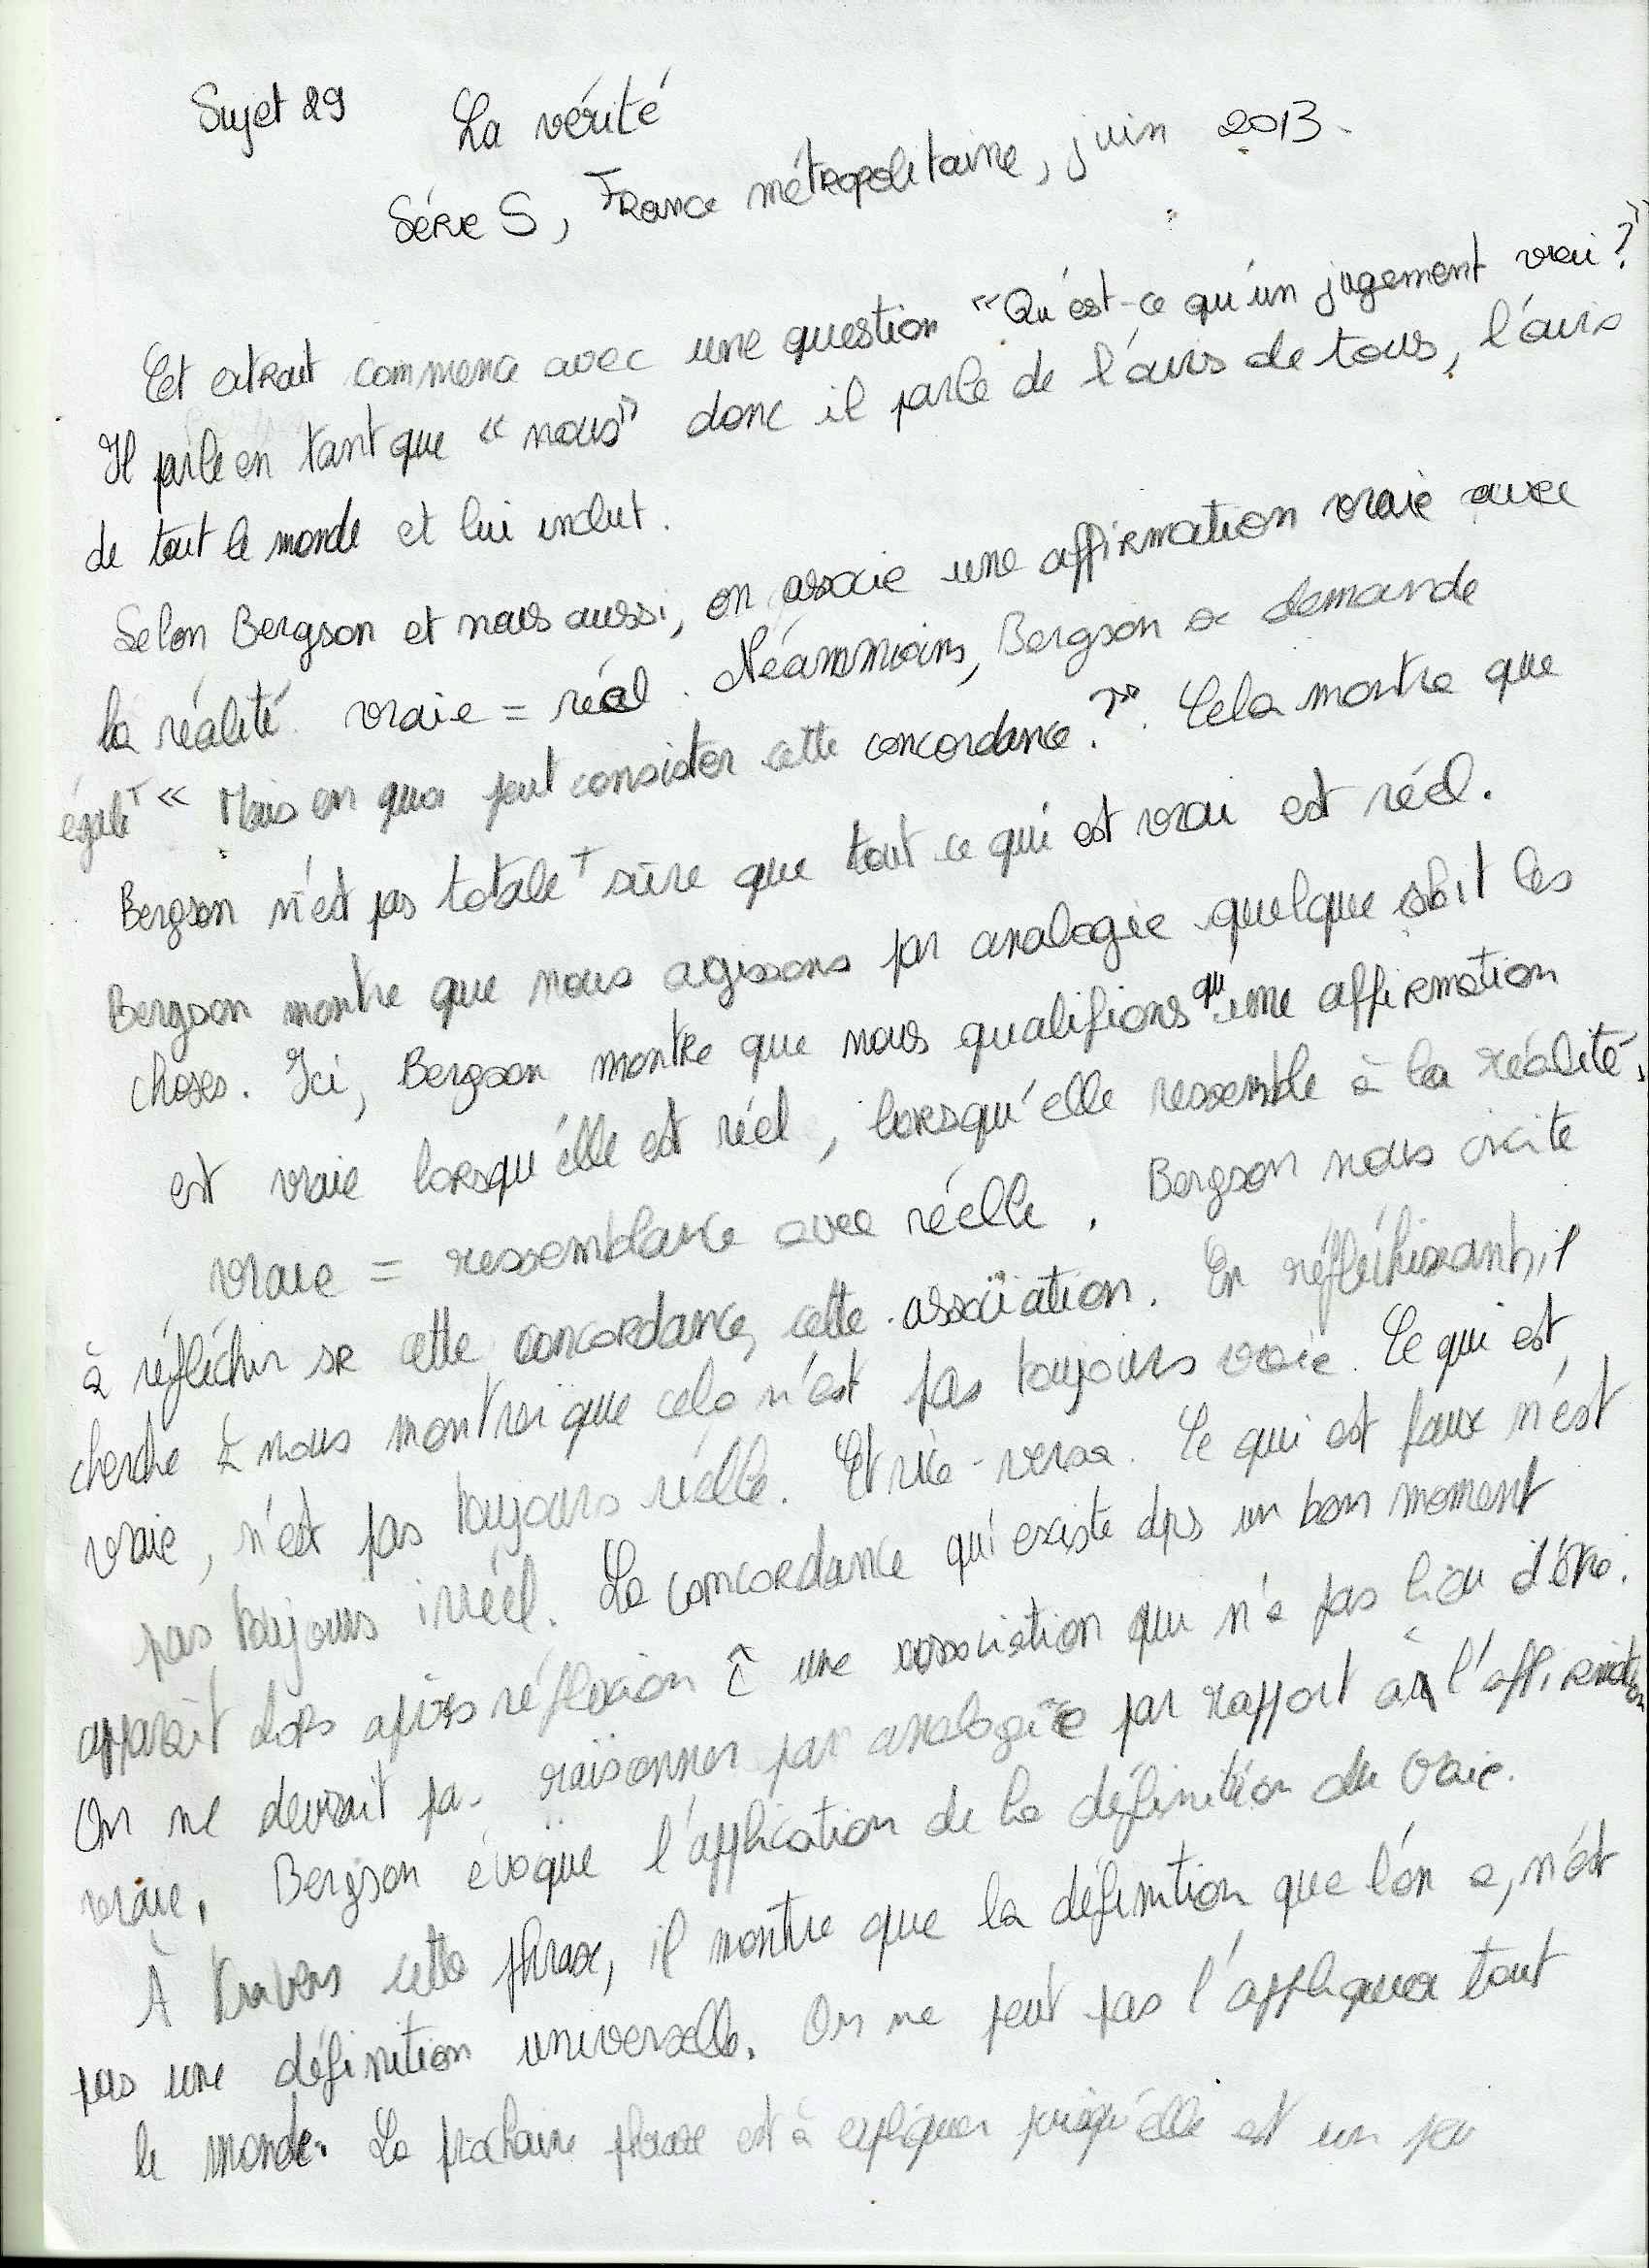 Sujet 29 La vérité
Série S, France métropolitaine, juin 2013.
Cet extrait commence avec une question "Qu'est-ce qu'un jugement vrai?"
Il parle en tant que "nous" donc il parle de l'avis de tous, l'avis
de tout le monde et lui inclut.
Selon Bergson et nous aussi, on associe une affirmation vraie avec
la réalité. vraie = réel. Néanmoins, Bergson se demande
égalt « Mais en quoi peut consister cette concordance?". Cela montre que
Bergson n'est pas totalet sûre que tout ce qui est vrai est réel.
Bergson montre que nous agissons par analogie quelque soit les
choses. Ici, Bergson montre que nous qualifions qu'une affirmation
est vraie lorsqu'elle est réel, lorsqu'elle ressemble à la réalité,
vraie = ressemblance avec réelle. Bergson nous incite
à réfléchir sr cette concordance, cette association. En réfléchissant, il
cherche à nous montrer que cela n'est pas toujours vraie. Ce qui est
vraie, n'est pas toujours réelle. Et vice-versa. Ce qui est faux n'est
pas toujours irréel. La concordance qui existe dps un bon moment
apparaît alors après réflexion ĉ une association qui n'a pas lieu d'être.
On ne devrait pas raisonner par analogie par rapport à l'affirmation
vraie. Bergson évoque l'application de la définition du vraie.
À travers cette phrase, il montre que la définition que l'on a, n'est
pas une définition universelle. On ne peut pas l'appliquer tout
le monde. La prochaine phrase est à expliquer puisqu'elle est un peu